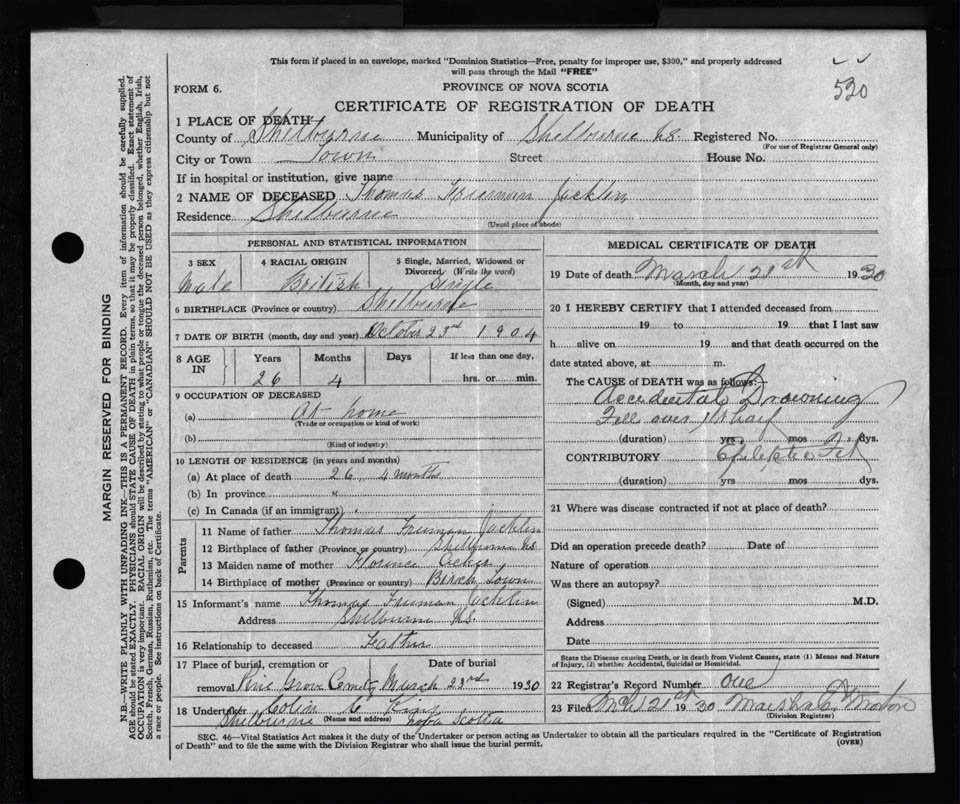 This form if placed in an envelope, marked "Dominion Statistics—Free, penalty for improper use, $300," and properly addressed
will pass through the Mail "FREE"
530
FORM 6.
PROVINCE OF NOVA SCOTIA
CERTIFICATE OF REGISTRATION OF DEATH
1 PLACE OF DEATH
County of Shelburne Municipality of Shelburne NS Registered No.
(For use of Registrar General only)
City or Town Town Street House No.
If in hospital or institution, give name
2 NAME OF DECEASED Thomas Freeman Jacklin
Residence Shelburne
(Usual place of abode)
PERSONAL AND STATISTICAL INFORMATION
3 SEX 4 RACIAL ORIGIN 5 Single, Married, Widowed or
Divorced (Write the word)
Male British Single
6 BIRTHPLACE (Province or country) Shelburne
7 DATE OF BIRTH (month, day and year) October 23rd 1904
8 AGE IN Years Months Days If less than one day,
26 4 hrs. or min.
9 OCCUPATION OF DECEASED
(a) At home
(Trade or occupation or kind of work)
(b)
(Kind of industry)
10 LENGTH OF RESIDENCE (in years and months)
(a) At place of death 26 4 months
(b) In province "
(c) In Canada (if an immigrant)
Parents
11 Name of father Thomas Freeman Jacklin
12 Birthplace of father (Province or country) Shelburne NS
13 Maiden name of mother Florence Acker
14 Birthplace of mother (Province or country) Birch Town
15 Informant's name Thomas Freeman Jacklin
Address Shelburne N.S.
16 Relationship to deceased Father
17 Place of burial, cremation or Date of burial
removal Pine Grove Cemety March 23rd 1930
18 Undertaker Colin C
Shelburne (Name and address) Nova Scotia
MEDICAL CERTIFICATE OF DEATH
19 Date of death March 21st 1930
(Month, day and year)
20 I HEREBY CERTIFY that I attended deceased from
19 to 19 that I last saw
h alive on 19 and that death occurred on the
date stated above, at m.
The CAUSE of DEATH was as follows:—
Accidental Drowning
Fell over Wharf
(duration) yrs. mos. dys.
CONTRIBUTORY Epileptic Fit
(duration) yrs. mos. dys.
21 Where was disease contracted if not at place of death?
Did an operation precede death? Date of
Nature of operation
Was there an autopsy?
(Signed) M.D.
Address
Date
State the Disease causing Death, or in death from Violent Causes, state (1) Means and Nature
of Injury, (2) whether Accidental, Suicidal or Homicidal.
22 Registrar's Record Number one
23 Filed Mch 21st 1930 Marshall Morton
(Division Registrar)
SEC. 46—Vital Statistics Act makes it the duty of the Undertaker or person acting as Undertaker to obtain all the particulars required in the "Certificate of Registration
of Death" and to file the same with the Division Registrar who shall issue the burial permit.
(OVER)
MARGIN RESERVED FOR BINDING
N.B.—WRITE PLAINLY WITH UNFADING INK—THIS IS A PERMANENT RECORD. Every item of information should be carefully supplied.
AGE should be stated EXACTLY. PHYSICIANS should STATE CAUSE OF DEATH in plain terms, so that it may be properly classified. Exact statement of
OCCUPATION is very important. RACIAL ORIGIN will be described by stating to what people or tongue the deceased person belonged, whether English, Irish,
Scotch, French, German, Russian, Ruthenian, etc. The terms "AMERICAN" or "CANADIAN" SHOULD NOT BE USED as they express citizenship but not
a race or people. See instructions on back of Certificate.